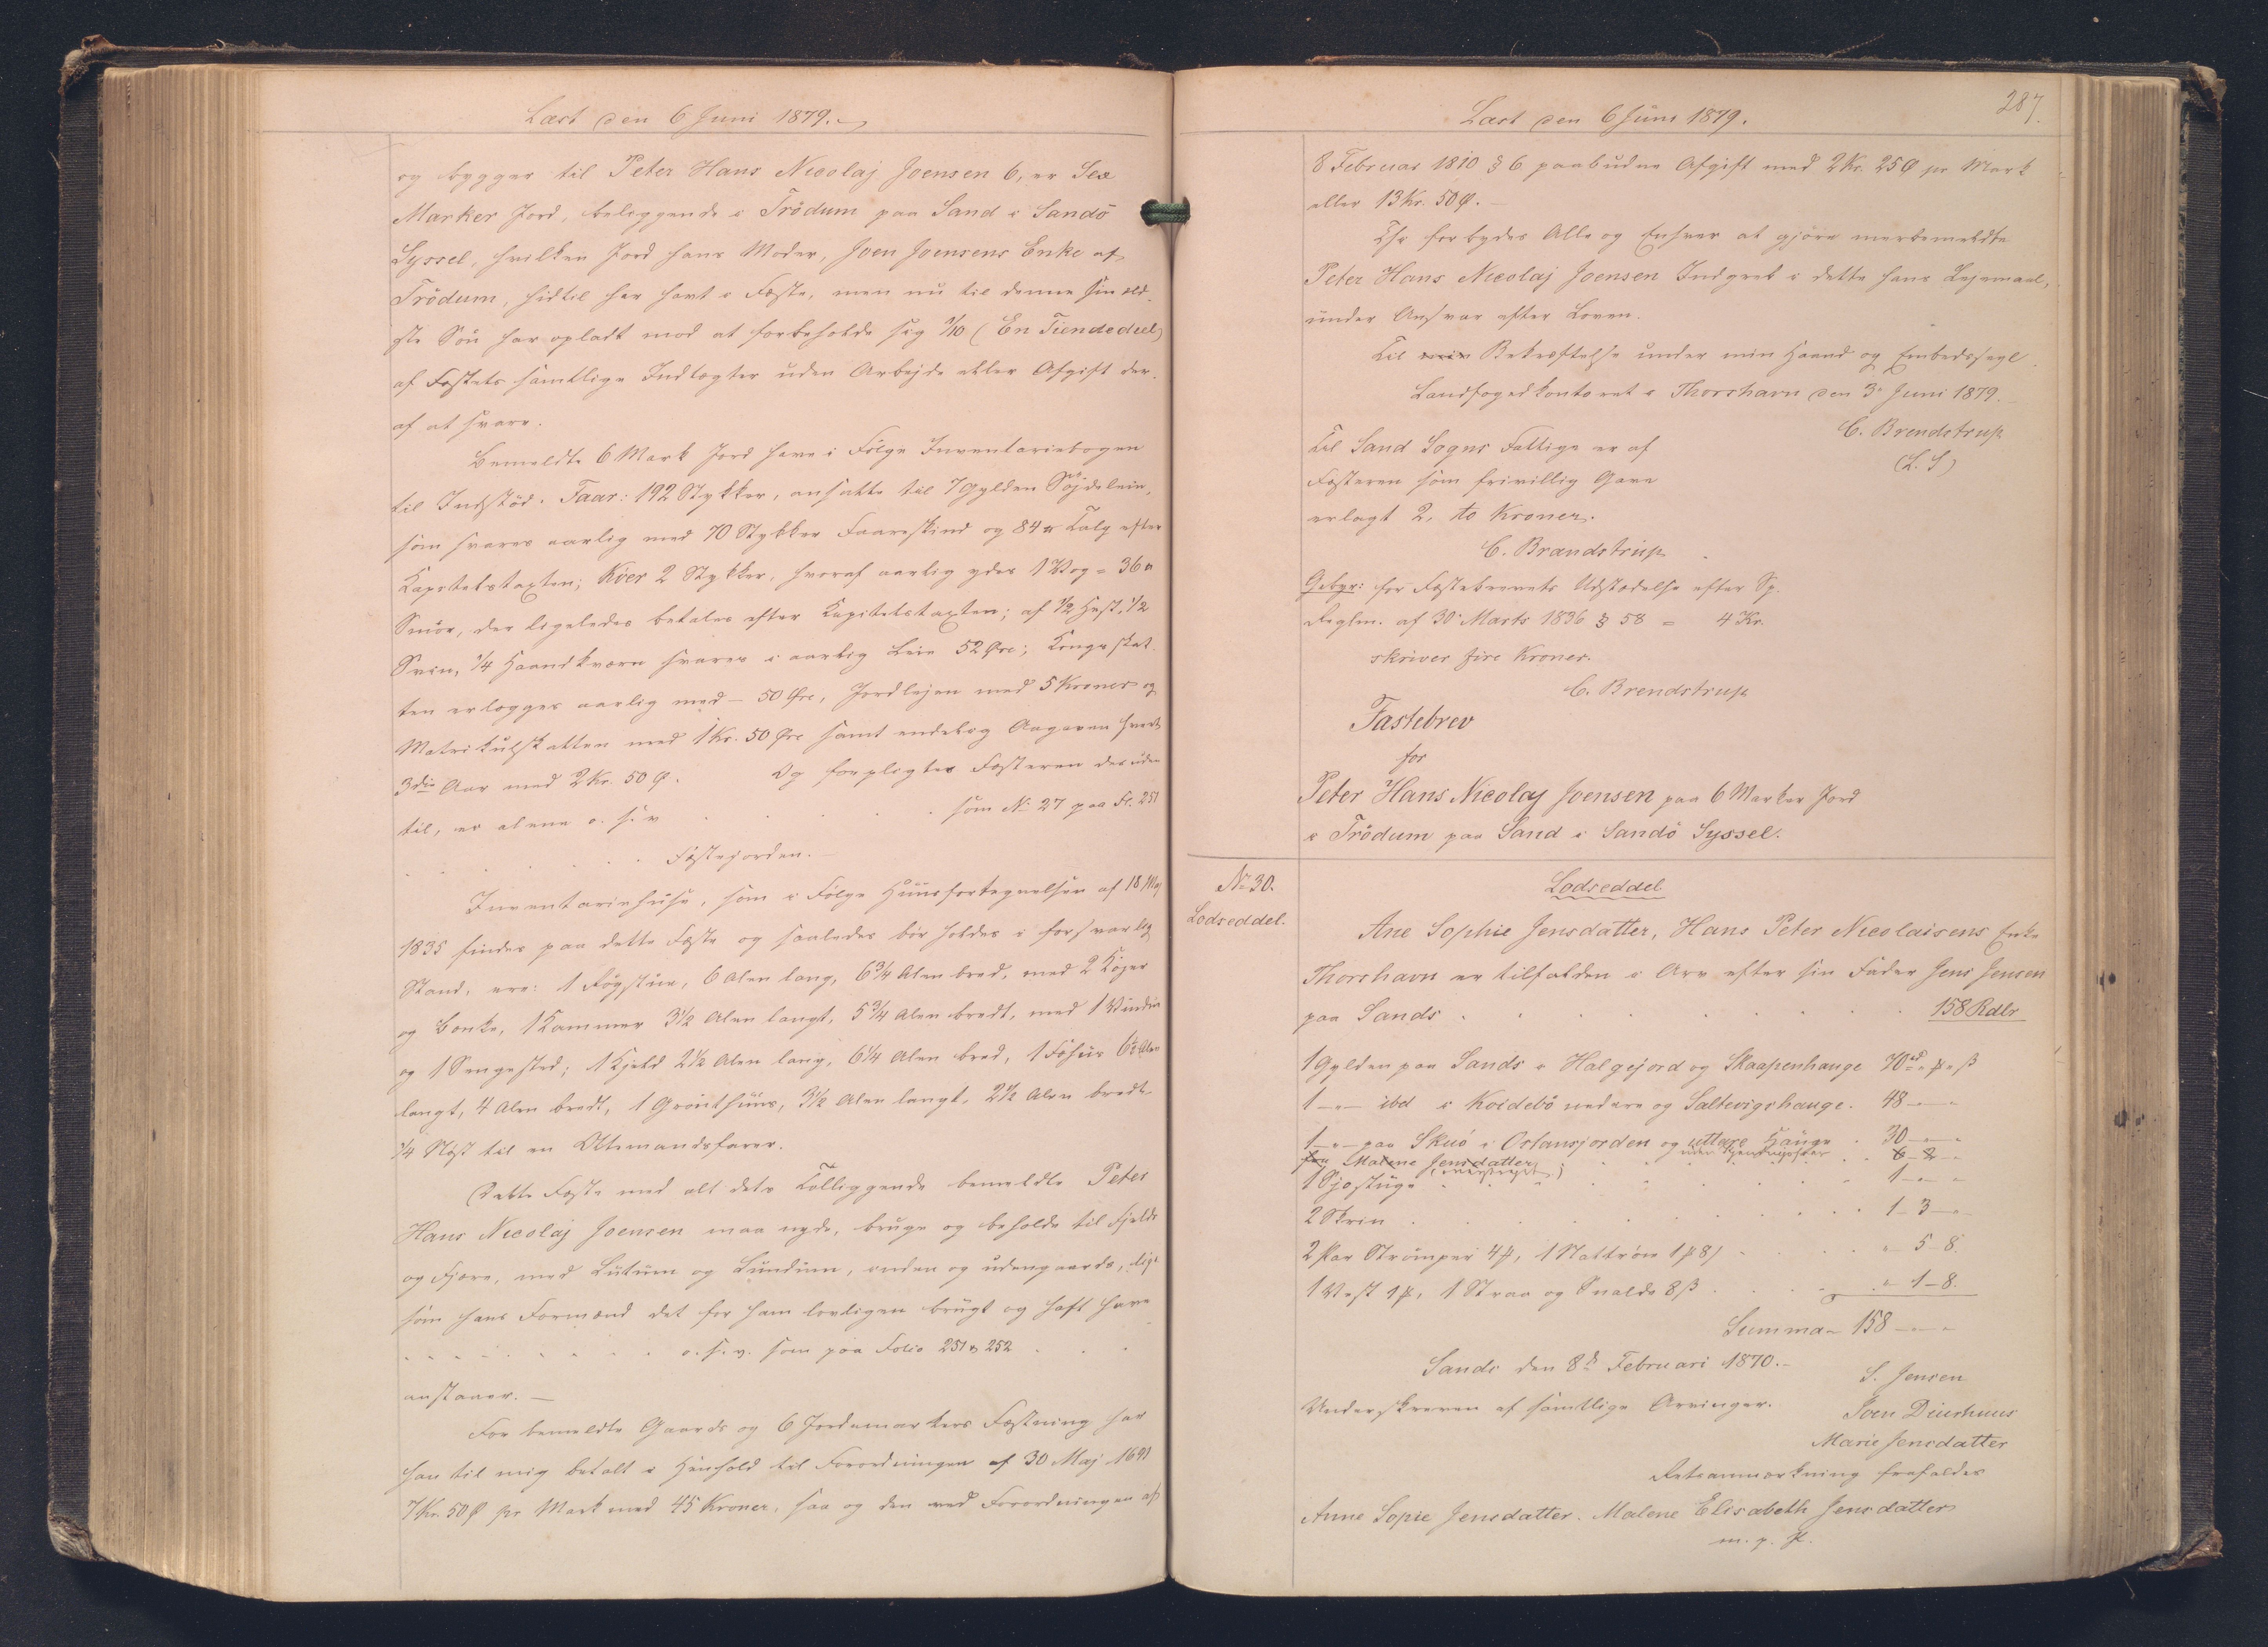 Læst den 6 Juni 1879.
og bygger til Peter Hans Nicolaj Joensen 6, er Sex
Marker Jord, beliggende i Trödum paa Sand i Sandö
Syssel, hvilken Jord hans Moder, Joen Joensens Enke af
Trödum, hidtil har havt i Fæste, men nu til denne sin æld-
ste Sön har opladt mod at forbeholde sig 1/10 (En Tiendedeel)
af Fæstets samtlige Indtægter uden Arbejde eller Afgift der-
af at svare.
Bemeldte 6 Mark Jord have i Fölge Inventariebogen
til Indstöd. Faar: 192 Stykker, ansatte til 7 Gylden Söjdeleie,
som svares aarlig med 70 Stykker Faareskind og 84 ℔ Talg efter
Kapitelstaxten; Köer 2 Stykker, hvoraf aarlig ydes 1 Vog = 36 ℔
Smör, der ligeledes betales efter Kapitelstaxten; af 1/2 Hest, 1/2
Svin, 1/4 Haandkværn svares i aarlig Leie 52 Øre; Kongeskat-
ten erlægges aarlig med – 50 Øre, Jordlejen med 5 Kroner og
Matrikulskatten med 1 Kr. 50 Øre samt endelig hvert
3die Aar med 2 Kr. 50 Ø. Og forpligtes Fæsteren desuden
til, er alene o. s. v. . . . . . som No 27 paa Fl. 251
. . . . . . Fæstejorden.
Inventariehuse, som i Fölge Huusfortegnelsen af 18 Maj
1835 findes paa dette Fæste og saaledes bör holdes i forsvarlig
Stand, ere: 1 Rögstue, 6 Alen lang, 6 3/4 Alen bred, med 2 Köjer
og Bænke, 1 Kammer 3 1/2 Alen langt, 5 3/4 Alen bredt, med 1 Vindue
og 1 Sengested; 1 Hjeld 2 1/2 Alen lang, 6 1/4 Alen bred, 1 Fæhus 6 1/2 Alen
langt, 4 Alen bredt, 1 Gröithuus, 3 1/2 Alen langt, 2 1/2 Alen bredt
1/4 Nöst til en Ottemandsfarer.
Dette Fæste med alt dets Tilliggende bemeldte Peter
Hans Nicolaj Joensen maa nyde, bruge og beholde til Fjelds
og Fjære, med Lutum og Lundum, inden og udengaards, lige-
som hans Formænd det for ham lovligen brugt og haft have
. . . . . . o. s. v. som paa Folio 251 & 252 . . .
anstaaer. —
For bemeldte Gaards og 6 Jordemarkers Fæstning har
han til mig betalt i Henhold til Forordningen af 30 Maj 1691
7 Kr. 50 Ø pr Mark med 45 Kroner, saa og den ved Forordningen af
287.
Læst den 6 Juni 1879.
8 Februar 1810 § 6 paabudne Afgift med 2 Kr. 25 Ø pr Mark
eller 13 Kr. 50 Ø. —
Thi forbydes Alle og Enhver at gjöre merbemeldte
Peter Hans Nicolaj Joensen Indgreb i dette hans Lejemaal,
under Ansvar efter Loven.
Til min Bekræftelse under min Haand og Embedssegl.
Landfogedkontoret i Thorshavn den 3. Juni 1879.
C. Brendstrup
(L. S)
Til Sand Sogns Fattige er af
Fæsteren som frivillig Gave
erlagt 2, to Kroner.
C. Brændstrup
Gebyr: for Fæstebrevets Udstædelse efter Sp.
Reglm. af 30 Marts 1836 § 58 = 4 Kr.
skriver fire Kroner.
C. Brendstrup
Fæstebrev
for
Peter Hans Nicolaj Joensen paa 6 Marker Jord
i Trödum paa Sand i Sandö Syssel.
No 30.
Lodseddel.
Lodseddel
Ane Sophie Jensdatter, Hans Peter Nicolaisens Enke
Thorshavn er tilfalden i Arv efter sin Fader Jens Jensen
paa Sands . . . . . . . 158 Rdlr
1 Gylden paa Sands i Halgejord og Skaapenhauge 70 rd „ ꝑ „ ß
1 — „ — ibd i Kvidebö nedere og Saltevigshauge. 48 — „ — „
1 — „ — paa Skuö i Ostansjorden og uttare Hauge . 30 — „ — „
fra Malene Jensdatter . . . 6 – 2 – „
(overstreget)
1 Sjostuge . . . . . 1 — „ — „
2 Skrin . . . . . . 1 – 3 – „
2 Par Strömper 4 ꝑ, 1 Nattröie 1 ꝑ 8 ß . . . „ – 5 – 8.
1 Vest 1 ꝑ, 1 Straa og Snalde 8 ß . . . . „ 1 – 8.
Summa = 158 — „ — „
Sands den 8de Februari 1870. –
Underskreven af samtlige Arvinger.
S. Jensen
Joen Diurhuus
Marie Jensdatter
Retsanmærkning frafaldes
Anne Sopie Jensdatter. Malene Elisabeth Jensdatter
m. p. P.